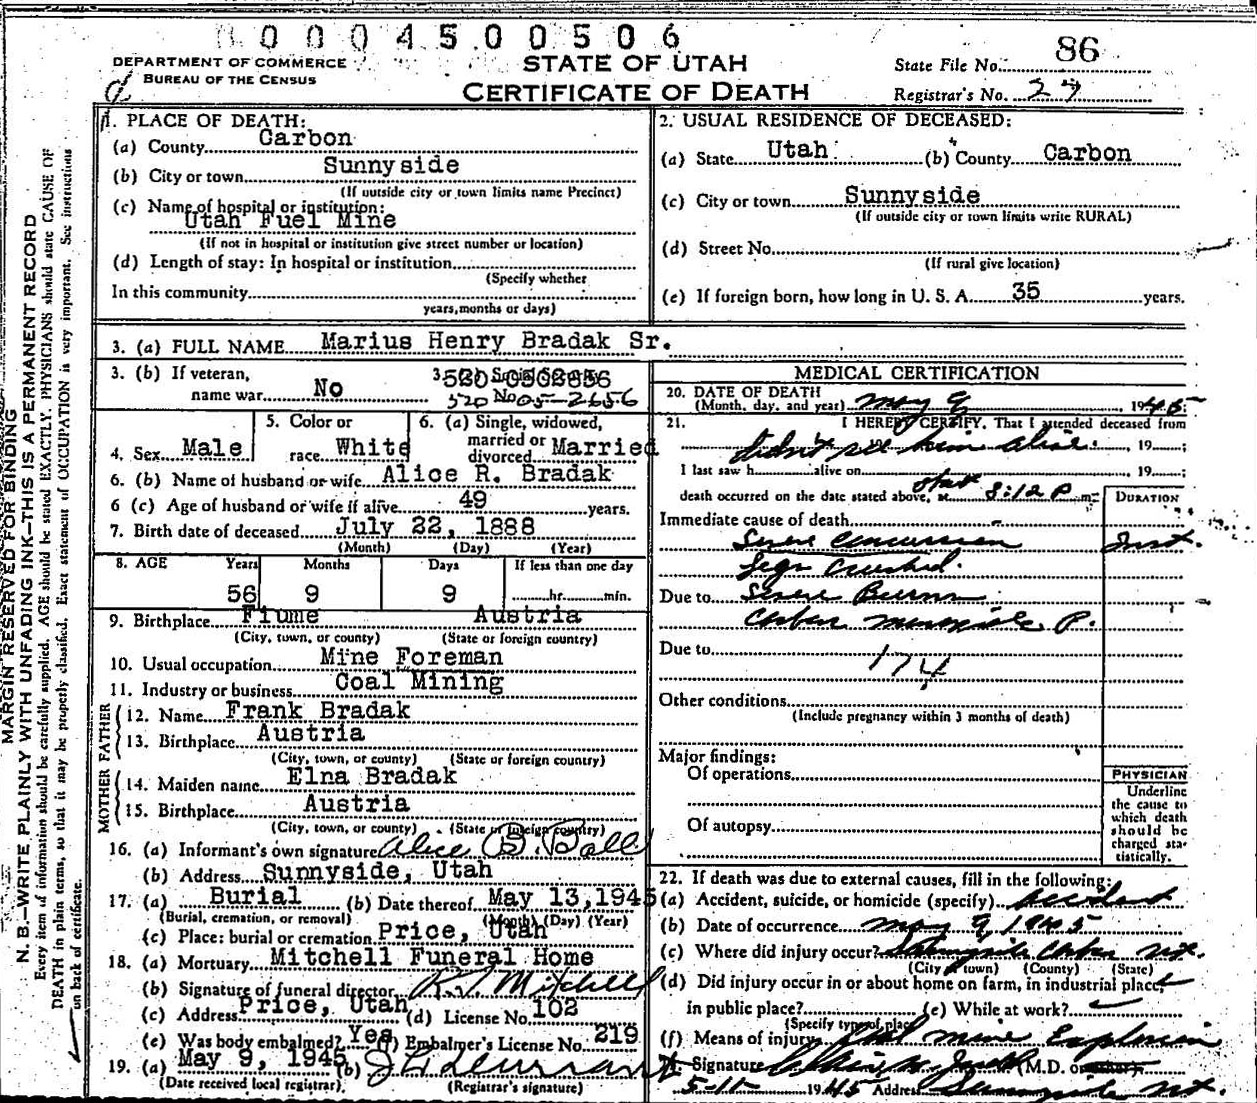 0004500506
DEPARTMENT OF COMMERCE
BUREAU OF THE CENSUS
STATE OF UTAH
CERTIFICATE OF DEATH
State File No. 86
Registrar's No. 27
MARGIN RESERVED FOR BINDING
N. B.—WRITE PLAINLY WITH UNFADING INK—THIS IS A PERMANENT RECORD
Every item of information should be carefully supplied. AGE should be stated EXACTLY. PHYSICIANS should state CAUSE OF
DEATH in plain terms, so that it may be properly classified. Exact statement of OCCUPATION is very important. See instructions
on back of certificate.
1. PLACE OF DEATH:
(a) County Carbon
(b) City or town Sunnyside
(If outside city or town limits name Precinct)
(c) Name of hospital or institution:
Utah Fuel Mine
(If not in hospital or institution give street number or location)
(d) Length of stay: In hospital or institution
(Specify whether
In this community
years, months or days)
2. USUAL RESIDENCE OF DECEASED:
(a) State Utah (b) County Carbon
(c) City or town Sunnyside
(If outside city or town limits write RURAL)
(d) Street No.
(If rural give location)
(e) If foreign born, how long in U. S. A. 35 years.
3. (a) FULL NAME Marius Henry Bradak Sr.
3. (b) If veteran,
name war No
520 05-2656
4. Sex Male
5. Color or
race White
6. (a) Single, widowed,
married or
divorced Married
6. (b) Name of husband or wife Alice R. Bradak
6 (c) Age of husband or wife if alive 49 years.
7. Birth date of deceased July 22, 1888
(Month) (Day) (Year)
8. AGE Years Months Days If less than one day
56 9 9 hr. min.
9. Birthplace Fiume Austria
(City, town, or county) (State or foreign country)
10. Usual occupation Mine Foreman
11. Industry or business Coal Mining
FATHER
12. Name Frank Bradak
13. Birthplace Austria
(City, town, or county) (State or foreign country)
MOTHER
14. Maiden name Elna Bradak
15. Birthplace Austria
(City, town, or county) (State or foreign country)
16. (a) Informant's own signature Alice B. Ball
(b) Address Sunnyside, Utah
17. (a) Burial (b) Date thereof May 13, 1945
(Burial, cremation, or removal) (Month) (Day) (Year)
(c) Place: burial or cremation Price, Utah
18. (a) Mortuary Mitchell Funeral Home
(b) Signature of funeral director Mitchell
(c) Address Price, Utah (d) License No. 102
(e) Was body embalmed? Yes (f) Embalmer's License No. 219
19. (a) May 9, 1945 (b)
(Date received local registrar) (Registrar's signature)
MEDICAL CERTIFICATION
20. DATE OF DEATH
(Month, day, and year) May 9, 1945
21. I HEREBY CERTIFY, That I attended deceased from
didn't see him alive, 19 ;
I last saw h alive on , 19 ;
death occurred on the date stated above, at 8:12 P. m.
DURATION
Immediate cause of death
Severe Concussion Inst.
Legs Crushed.
Due to Severe Burns
Carbon P.
Due to
174
Other conditions
(Include pregnancy within 3 months of death)
Major findings:
Of operations
Of autopsy
PHYSICIAN
Underline
the cause to
which death
should be
charged sta-
tistically.
22. If death was due to external causes, fill in the following:
(a) Accident, suicide, or homicide (specify) Accident
(b) Date of occurrence May 9, 1945
(c) Where did injury occur? Sunnyside Carbon Ut.
(City or town) (County) (State)
(d) Did injury occur in or about home on farm, in industrial place,
in public place? (e) While at work?
(Specify type of place)
(f) Means of injury mine Explosion
Signature (M.D. or other)
5-11- 1945 Address Sunnyside Ut.